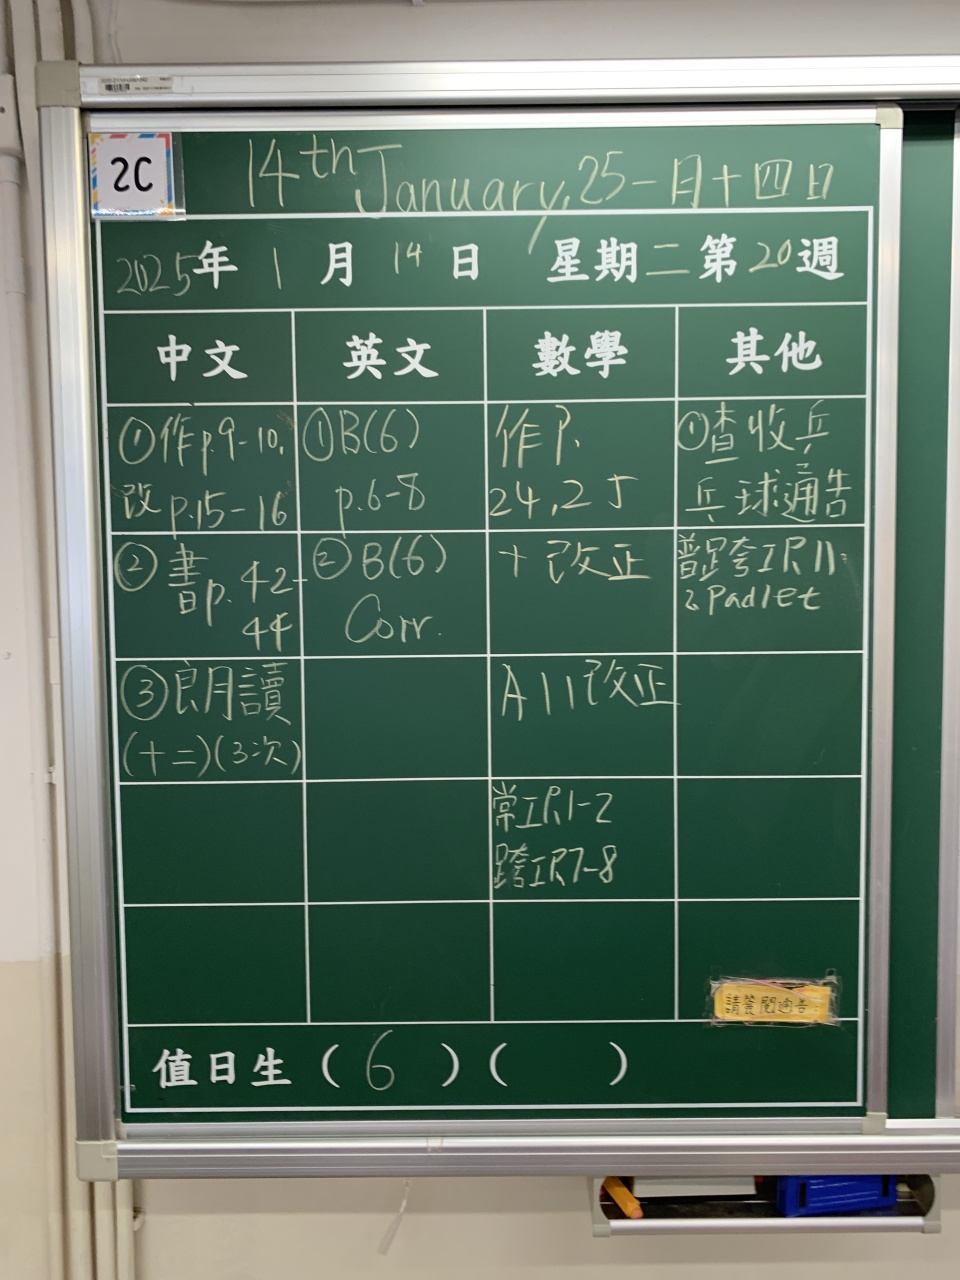 2C
14th January, 25 一月十四日
2025年 1 月 14 日 星期二第20週
中文 英文 數學 其他
①作p.9-10,
改p.15-16
①B(6)
p.6-8
作P.
24,25
①查收乒
乓球通告
②書p.42-
44
②B(6)
Corr.
+改正
普跨工P.11
Padlet
③朗讀
(十二)(3次)
A11改正
常工P.1-2
跨工P.7-8
請簽閱通告
值日生(6)( )